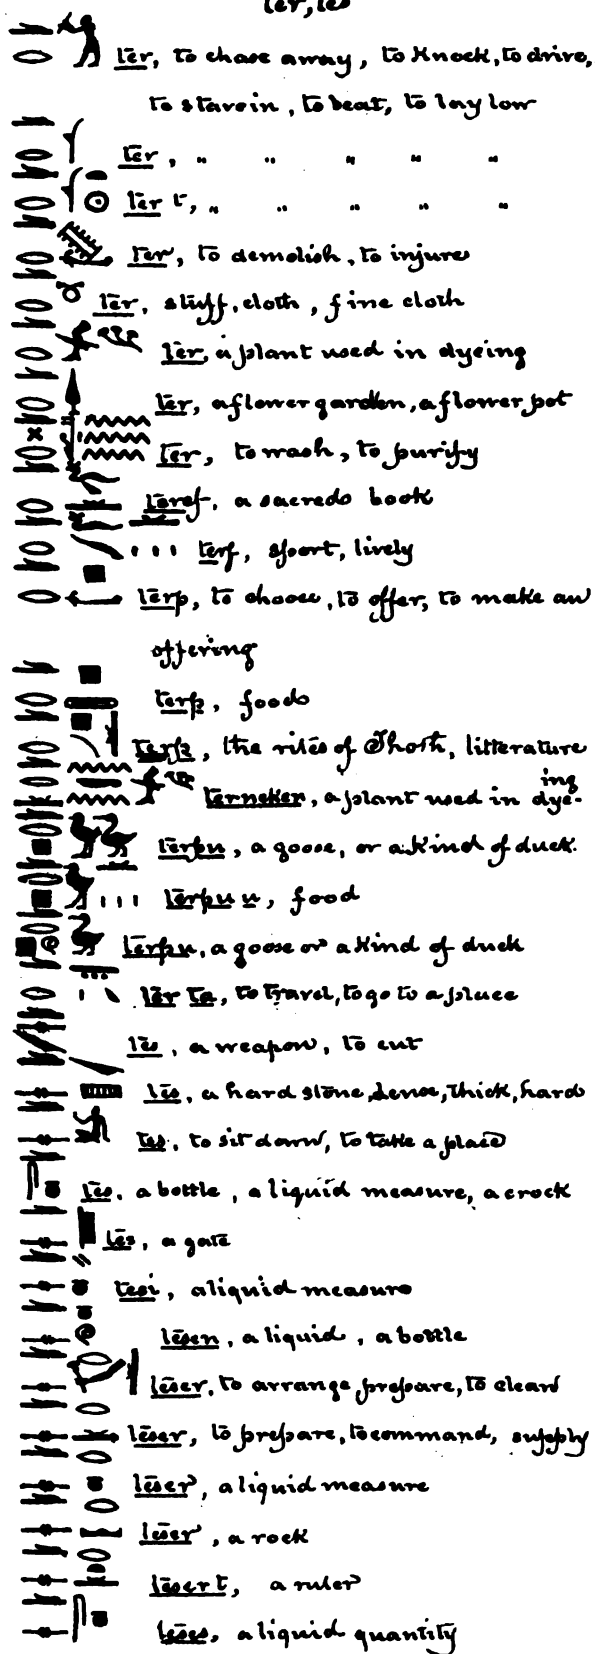 ter, tes
ter, to chase away, to knock, to drive,
to starvin, to beat, to lay low
ter, " " " " "
ter t, " " " " "
ter, to demolish, to injure
ter, stuff, cloth, fine cloth
ter, a plant used in dyeing
ter, a flower garden, a flower pot
ter, to wash, to purify
teref, a sacred book
terf, sport, lively
terp, to choose, to offer, to make an
offering
terp, food
terp, the rites of Thoth, litterature
terneken, a plant used in dye-
ing
terpu, a goose, or a kind of duck.
terpu u, food
terpu, a goose or a kind of duck
ter ta, to travel, to go to a place
tes, a weapon, to cut
tes, a hard stone, dense, thick, hard
tes, to sit down, to take a place
tes, a bottle, a liquid measure, a crock
tes, a gate
tesi, a liquid measure
tesen, a liquid, a bottle
teser, to arrange, prepare, to clean
teser, to prepare, to command, supply
teser, a liquid measure
teser, a rock
tesert, a ruler
teses, a liquid quantity